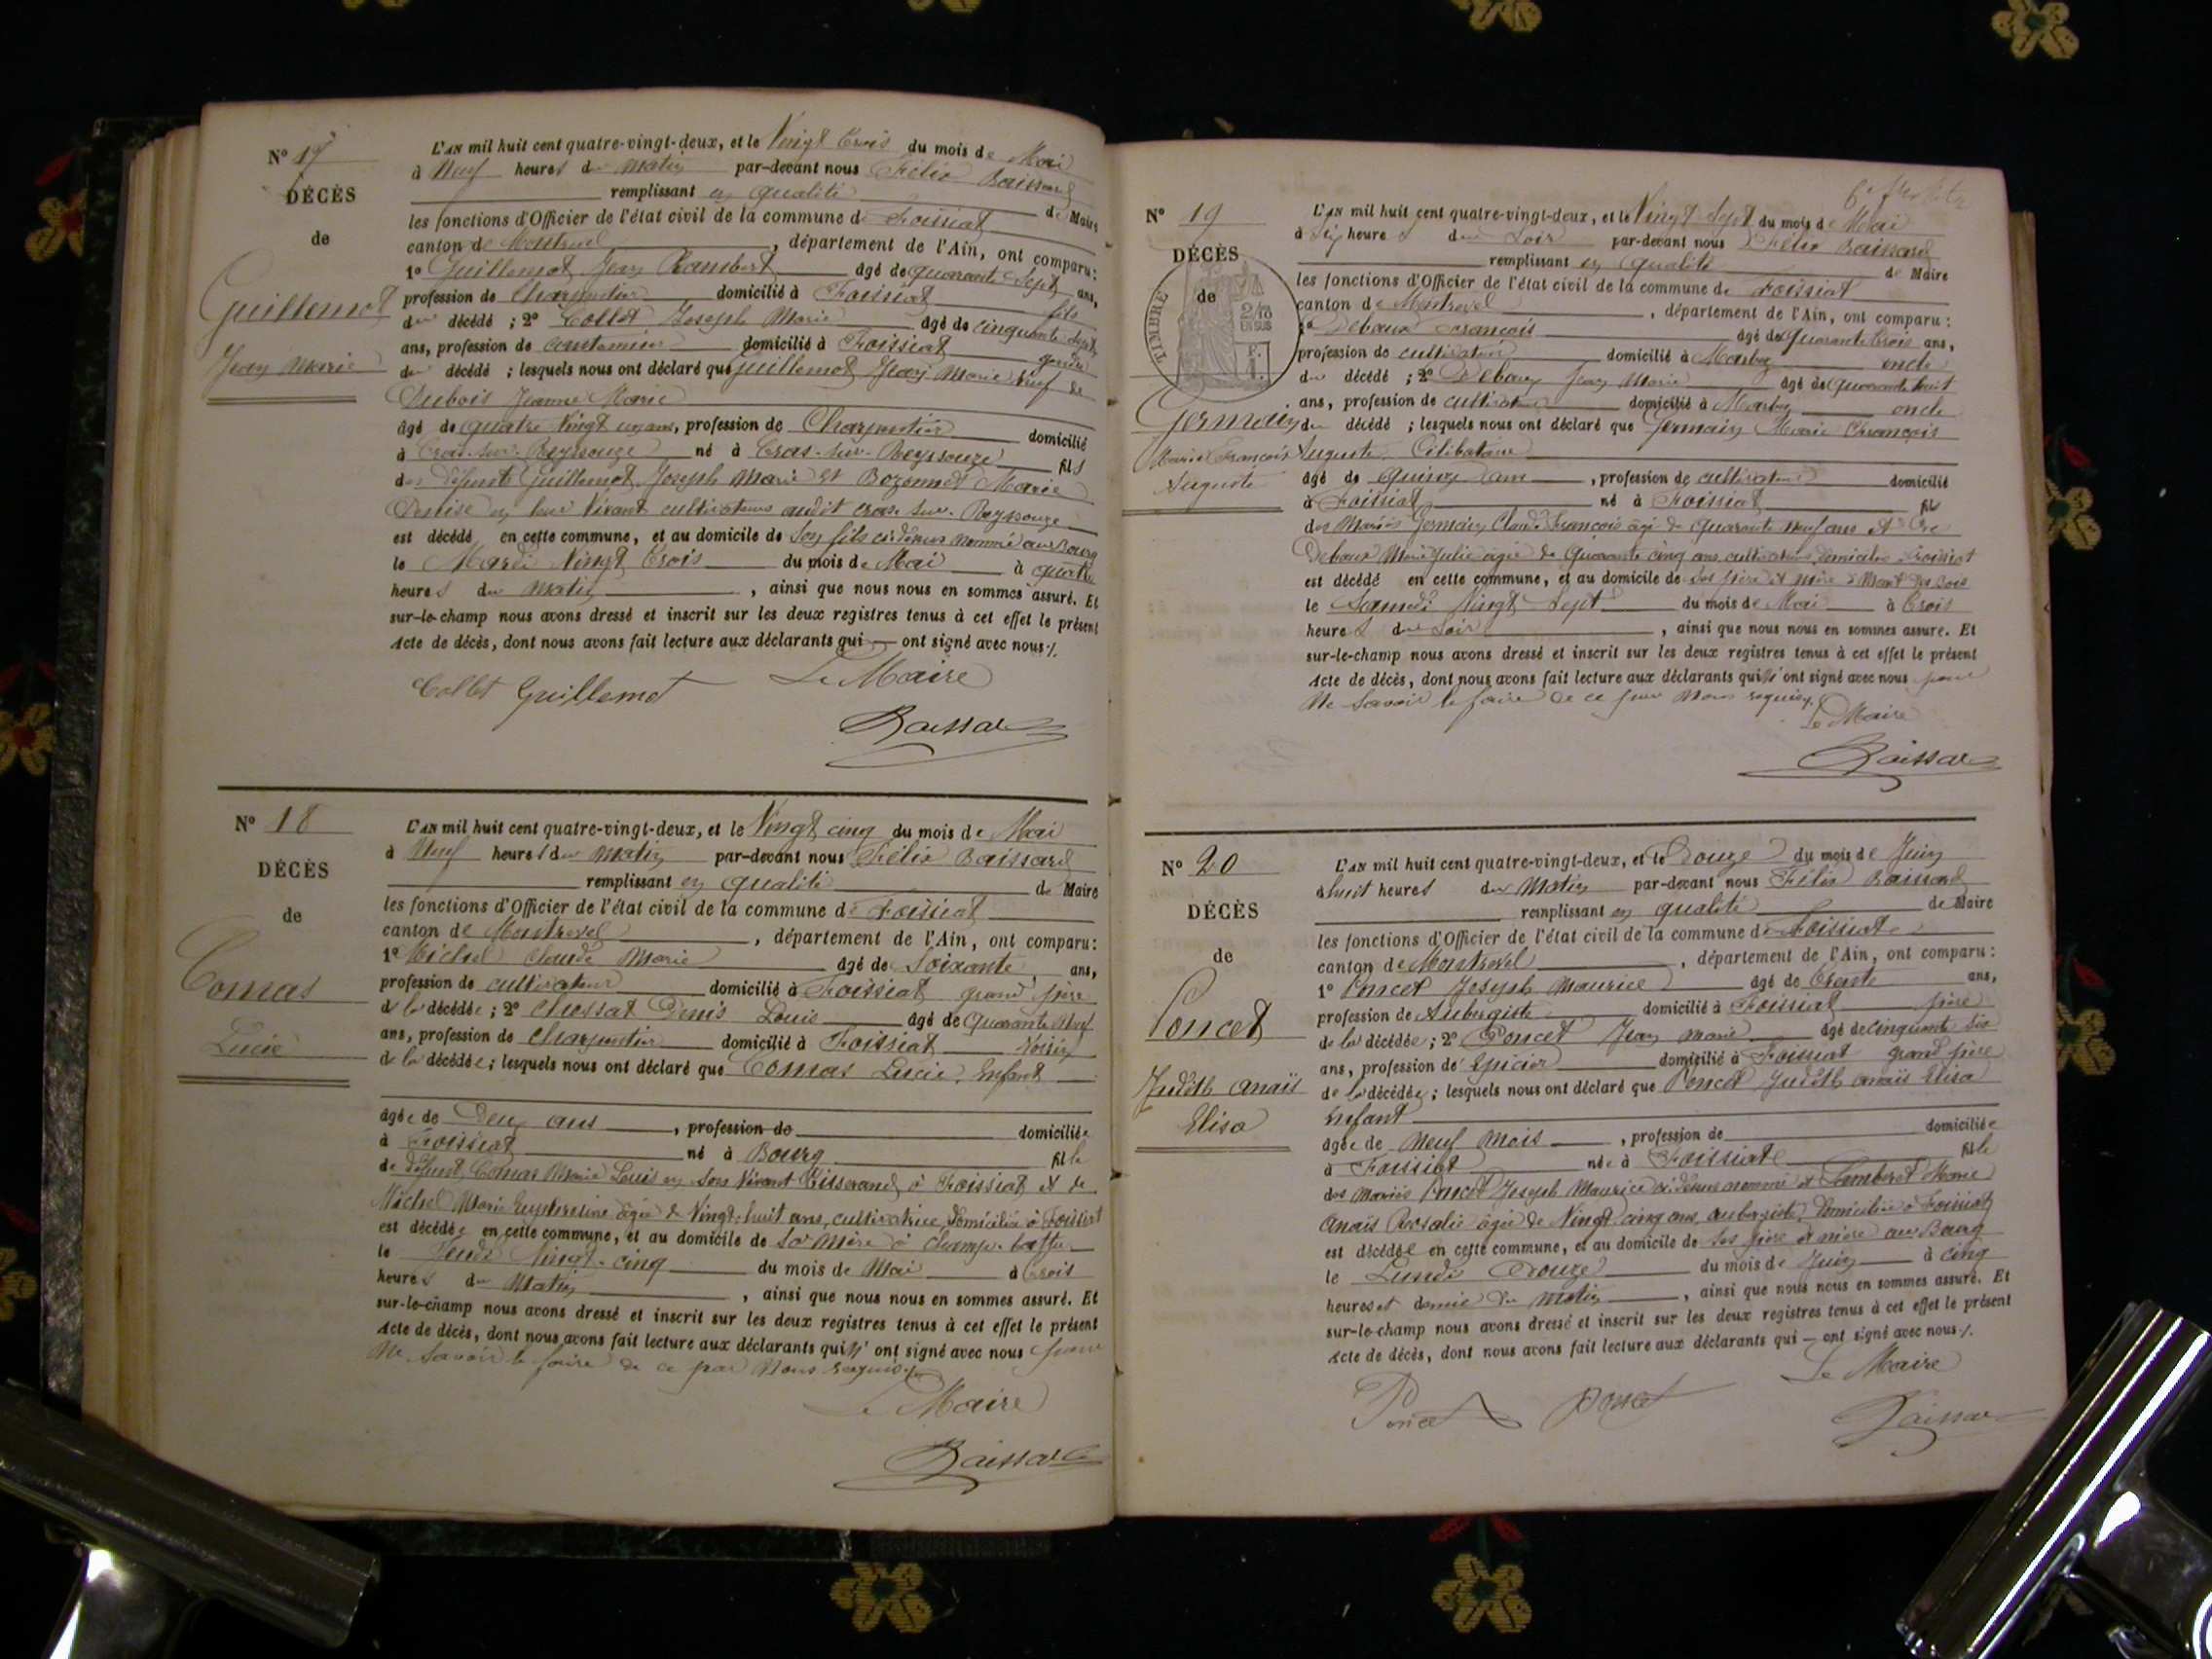 N° 17
DÉCÈS
de
Guillemot
Jean Marie
L'AN mil huit cent quatre-vingt-deux, et le Vingt trois du mois de Mai
à Neuf heures du matin par-devant nous Félix Baissard
remplissant en qualité de Maire
les fonctions d'Officier de l'état civil de la commune de Foissiat
canton de Montrevel, département de l'Ain, ont comparu:
1° Guillemot Jean Rambert âgé de quarante Sept ans,
profession de Charpentier domicilié à Foissiat fils
du décédé ; 2° Collet Joseph Marie âgé de cinquante Sept
ans, profession de domicilié à Foissiat gendre
du décédé ; lesquels nous ont déclaré que Guillemot Jean Marie Veuf de
Dubois Jeanne Marie
âgé de quatre Vingt un ans, profession de Charpentier domicilié
à Cras-sur-Reyssouze né à Cras-sur-Reyssouze fils
des défunts Guillemot Joseph Marie et Bozonnet Marie
en leur Vivant cultivateurs audit Cras-sur-Reyssouze
est décédé en cette commune, et au domicile de Son fils ci-dessus nommé au Bourg
le Mardi Vingt trois du mois de Mai à quatre
heures du matin, ainsi que nous nous en sommes assuré. Et
sur-le-champ nous avons dressé et inscrit sur les deux registres tenus à cet effet le présent
Acte de décès, dont nous avons fait lecture aux déclarants qui — ont signé avec nous ./.
Collet Guillemot Le Maire
Baissard
N° 18
DÉCÈS
de
Comas
Lucie
L'AN mil huit cent quatre-vingt-deux, et le Vingt cinq du mois de Mai
à Neuf heures du matin par-devant nous Félix Baissard
remplissant en qualité de Maire
les fonctions d'Officier de l'état civil de la commune de Foissiat
canton de Montrevel, département de l'Ain, ont comparu:
1° Michel Claude Marie âgé de Soixante ans,
profession de cultivateur domicilié à Foissiat grand père
de la décédée ; 2° Chossat Denis Louis âgé de Quarante Neuf
ans, profession de Charpentier domicilié à Foissiat Voisin
de la décédée ; lesquels nous ont déclaré que Comas Lucie, Enfant
âgée de Deux ans, profession de domiciliée
à Foissiat né à Bourg fille
de défunt Comas Marie Louis en Son Vivant Tisserand à Foissiat et de
Michel Marie âgée de Vingt-huit ans, cultivatrice, Domiciliée à Foissiat
est décédée en cette commune, et au domicile de Sa Mère à
le Jeudi Vingt-cinq du mois de Mai à trois
heures du Matin, ainsi que nous nous en sommes assuré. Et
sur-le-champ nous avons dressé et inscrit sur les deux registres tenus à cet effet le présent
Acte de décès, dont nous avons fait lecture aux déclarants qui n'ont signé avec nous pour
Ne Savoir le faire de ce par Nous requis ./.
Le Maire
Baissard
N° 19
DÉCÈS
de
TIMBRE
2/10
EN SUS
Germain
Marie François
Auguste
L'AN mil huit cent quatre-vingt-deux, et le Vingt Sept du mois de Mai
à Six heures du Soir par-devant nous Félix Baissard
remplissant en qualité de Maire
les fonctions d'Officier de l'état civil de la commune de Foissiat
canton de Montrevel, département de l'Ain, ont comparu :
1° Debaux François âgé de Quarante trois ans,
profession de cultivateur domicilié à Marboz oncle
du décédé ; 2° Debaux Jean Marie âgé de Quarante huit
ans, profession de cultivateur domicilié à Marboz oncle
du décédé ; lesquels nous ont déclaré que Germain Marie François
Auguste Célibataire
âgé de Quinze ans, profession de cultivateur domicilié
à Foissiat né à Foissiat fils
des Mariés Germain Claude François âgé de Quarante neuf ans et
Debaux Marie Julie âgée de Quarante cinq ans cultivateurs domiciliés à Foissiat
est décédé en cette commune, et au domicile de Ses père et mère à
le Samedi Vingt Sept du mois de Mai à trois
heures du Soir, ainsi que nous nous en sommes assuré. Et
sur-le-champ nous avons dressé et inscrit sur les deux registres tenus à cet effet le présent
Acte de décès, dont nous avons fait lecture aux déclarants qui n'ont signé avec nous pour
Ne Savoir le faire de ce par Nous requis ./.
Le Maire
Baissard
N° 20
DÉCÈS
de
Poncet
Judith Anaïs
Elisa
L'AN mil huit cent quatre-vingt-deux, et le Douze du mois de Juin
à huit heures du Matin par-devant nous Félix Baissard
remplissant en qualité de Maire
les fonctions d'Officier de l'état civil de la commune de Foissiat
canton de Montrevel, département de l'Ain, ont comparu :
1° Poncet Joseph Maurice âgé de trente ans,
profession de Aubergiste domicilié à Foissiat père
de la décédée ; 2° Poncet Jean Marie âgé de cinquante six
ans, profession de Epicier domicilié à Foissiat grand père
de la décédée ; lesquels nous ont déclaré que Poncet Judith anaïs Elisa
Enfant
âgée de Neuf Mois, profession de domiciliée
à Foissiat née à Foissiat fille
des Mariés Poncet Joseph Maurice ci-dessus nommé et Lambert Marie
Anaïs Rosalie âgée de Vingt cinq ans aubergiste, Domiciliés à Foissiat
est décédée en cette commune, et au domicile de Ses père et mère au Bourg
le Lundi Douze du mois de Juin à cinq
heures et demie du Matin, ainsi que nous nous en sommes assuré. Et
sur-le-champ nous avons dressé et inscrit sur les deux registres tenus à cet effet le présent
Acte de décès, dont nous avons fait lecture aux déclarants qui — ont signé avec nous ./.
Le Maire
Poncet Poncet Baissard